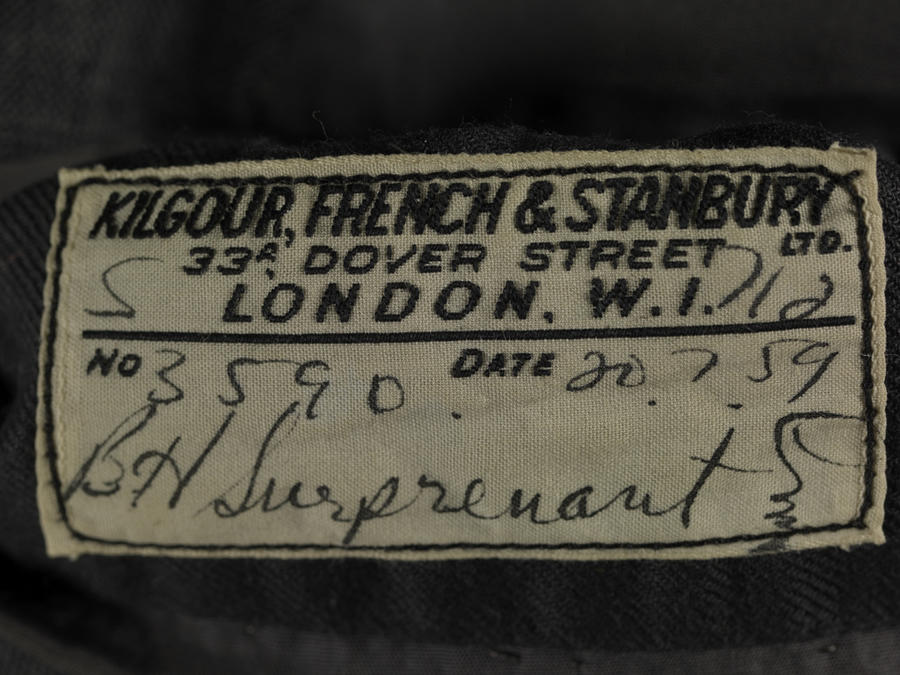 KILGOUR, FRENCH & STANBURY
LTD.
33A, DOVER STREET
5 LONDON, W.1. 712
No 3590. DATE 20.7.59
BH Surprenant